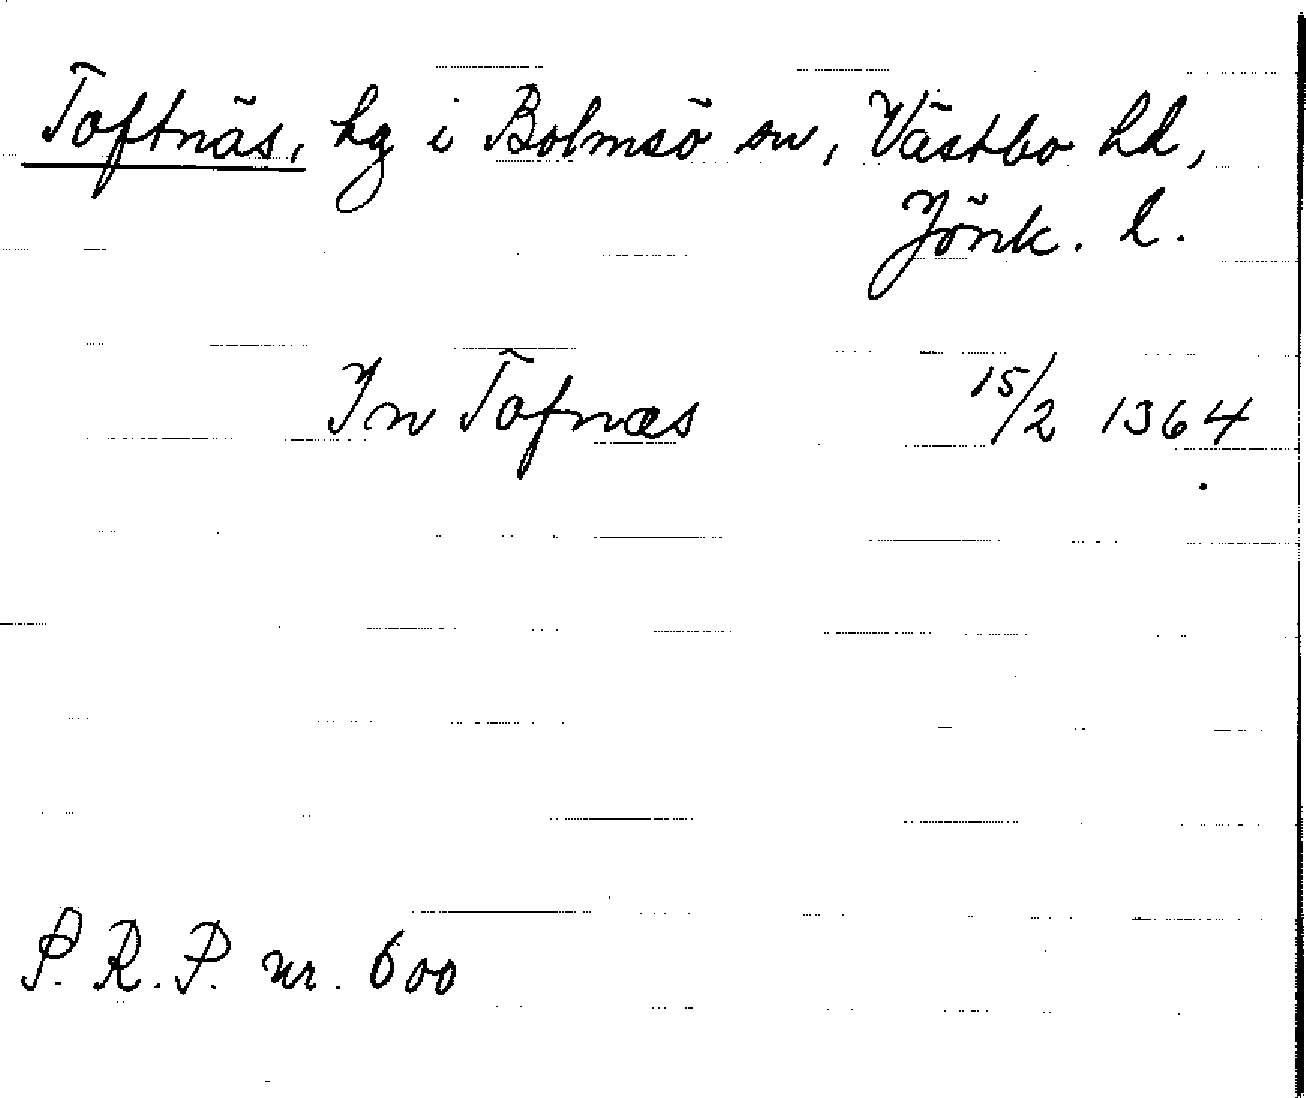 Toftnäs, hg i Bolmsö sn, Västbo hd,
Jönk. l.
In Tofnæs 15/2 1364
P.R.P. nr. 600